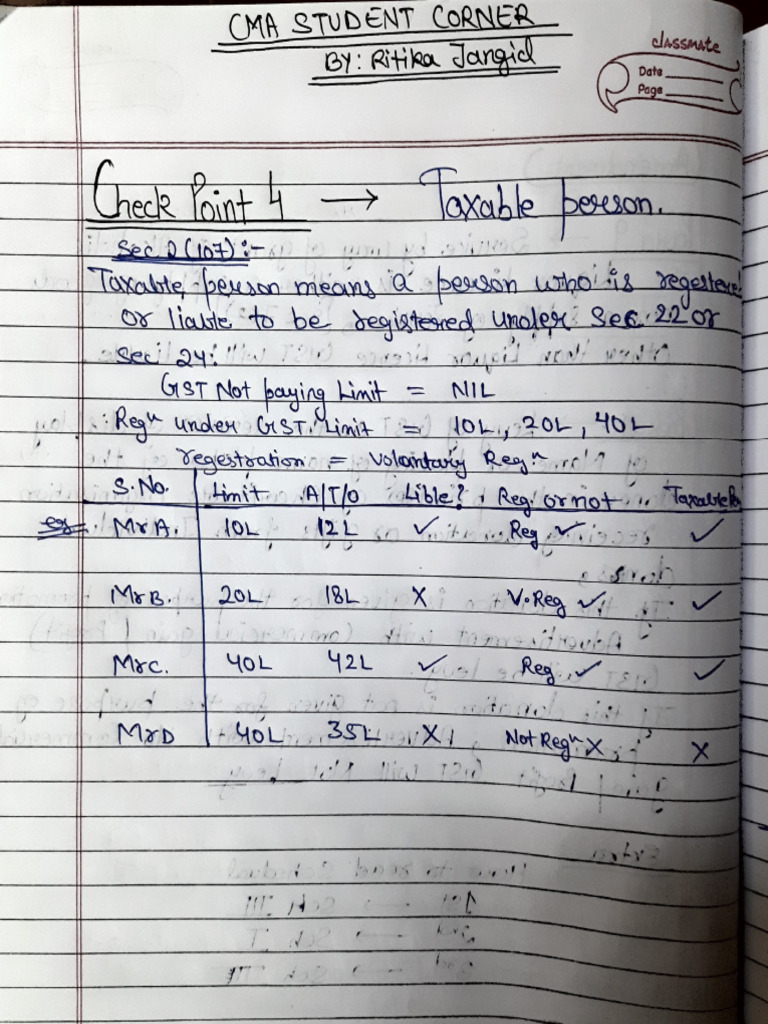 CMA STUDENT CORNER
BY: Ritika Jangid
classmate
Date
Page
Check Point 4 → Taxable person.
Sec 2 (107) :-
Taxable person means a person who is regestered
or liable to be registered under Sec 22 or
Sec 24.
GST Not paying Limit = NIL
Regⁿ under GST Limit = 10L, 20L, 40L
regestration = Voluntary Regⁿ
S.No. Limit A/T/O Lible? Reg. or not Taxable P
eg Mr A. 10L 12L ✓ Reg ✓ ✓
Mr B. 20L 18L X V.Reg ✓ ✓
Mr C. 40L 42L ✓ Reg. ✓ ✓
Mr D 40L 35L X Not Regⁿ X X